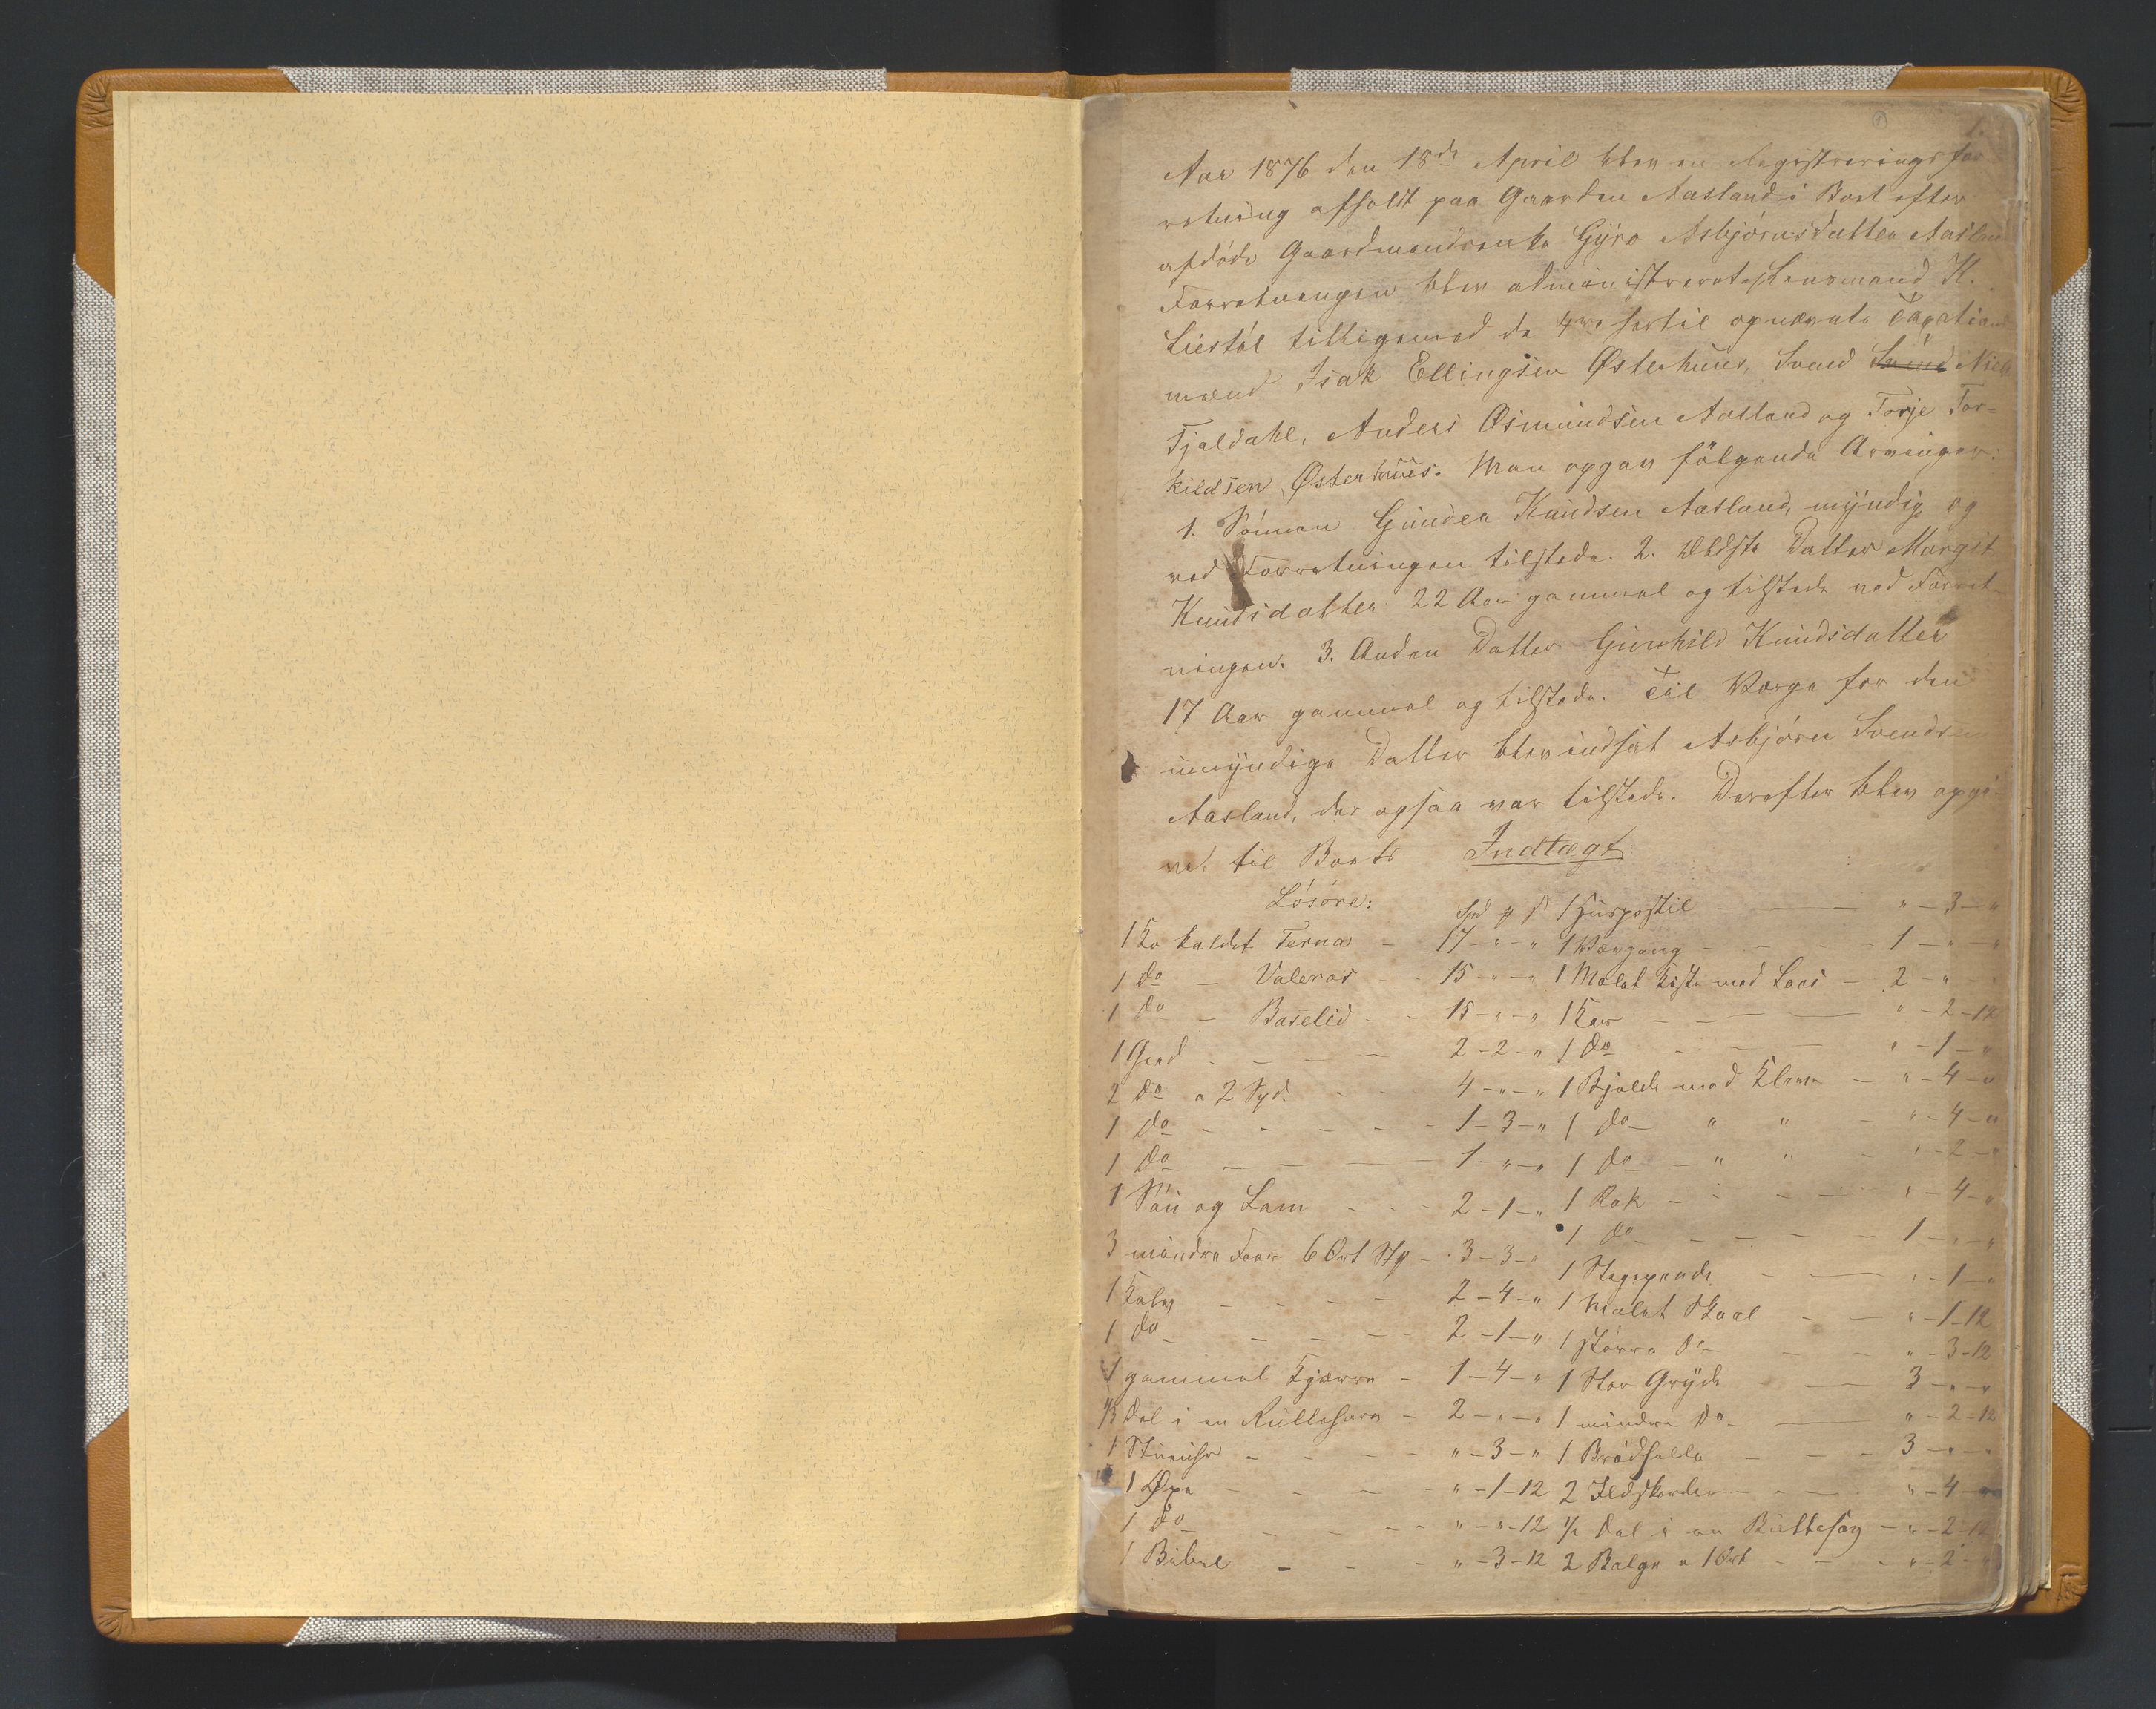 1.
Aar 1876 den 18de April blev en Registreringsfor
retning afholdt paa Gaarden Aasland i Boet efter
afdøde Gaardmandsenke Gyro Asbjørnsdatter Aasland
Forretningen blev administreret af Lensmand K.
Liestøl tilligemed de 4re hertil opnævnte Taxations
mænd Isak Ellingsen Østerhuus, Svend Svend Niels
Fjaldahl, Anders Osmundsen Aasland og Torje Tor-
kildsen Østerhuus. Man opgav følgende Arvinger:
1. Sønnen Gunder Knudsen Aasland, myndig og
ved Forretningen tilstede. 2. Ældste Datter Margit
Knudsdatter 22 Aar gammel og tilstede ved Forret-
ningen. 3. Anden Datter Gunhild Knudsdatter
17 Aar gammel og tilstede. Til Værge for den
umyndige Datter blev indsat Asbjørn Svendsen
Aasland, der ogsaa var tilstede. Derefter blev opgi-
vet til Boets Indtægt
Løsøre:
1 Ko kaldet Terna - 17 - " - "
1 do - Valeros - 15 - " - "
1 do - Baselid - 15 - " - "
1 Gjed - 2 - 2 - "
2 do a 2 Spd. - 4 - " - "
1 do - 1 - 3 - "
1 do - 1 - " - "
1 Sau og Lam - 2 - 1 - "
3 mindre Faar 6 Ort Stk - 3 - 3 - "
1 Kalv - 2 - 4 - "
1 do - 2 - 1 - "
1 gammel Kjærre - 1 - 4 - "
1/3 Del i en Rulleharv - 2 - " - "
1 - " - 3 - "
1 Øxe - " - 1 - 12
1 do - " - " - 12
1 Bibel - " - 3 - 12
1 Huspostil - " - 3 - "
1 - 1 - " - "
1 Malet Kiste med Laas - 2 - " - "
1 Kar - " - 2 - 12
1 do - " - 1 - "
1 Bjelde med Klave - " - 4 - "
1 do " " - " - 4 - "
1 do " " - " - 2 - "
1 Rok - " - 4 - "
1 do - 1 - " - "
1 Stegepande - " - 1 - "
1 Malet Skaal - " - 1 - 12
1 større do - " - 3 - 12
1 Stor Gryde - 3 - " - "
1 mindre do - " - 2 - 12
1 Brødhelle - 3 - " - "
2 - " - 4 - "
1/2 Del i en - " - 2 - 12
2 Balge a 1 Ort - " - 2 - "